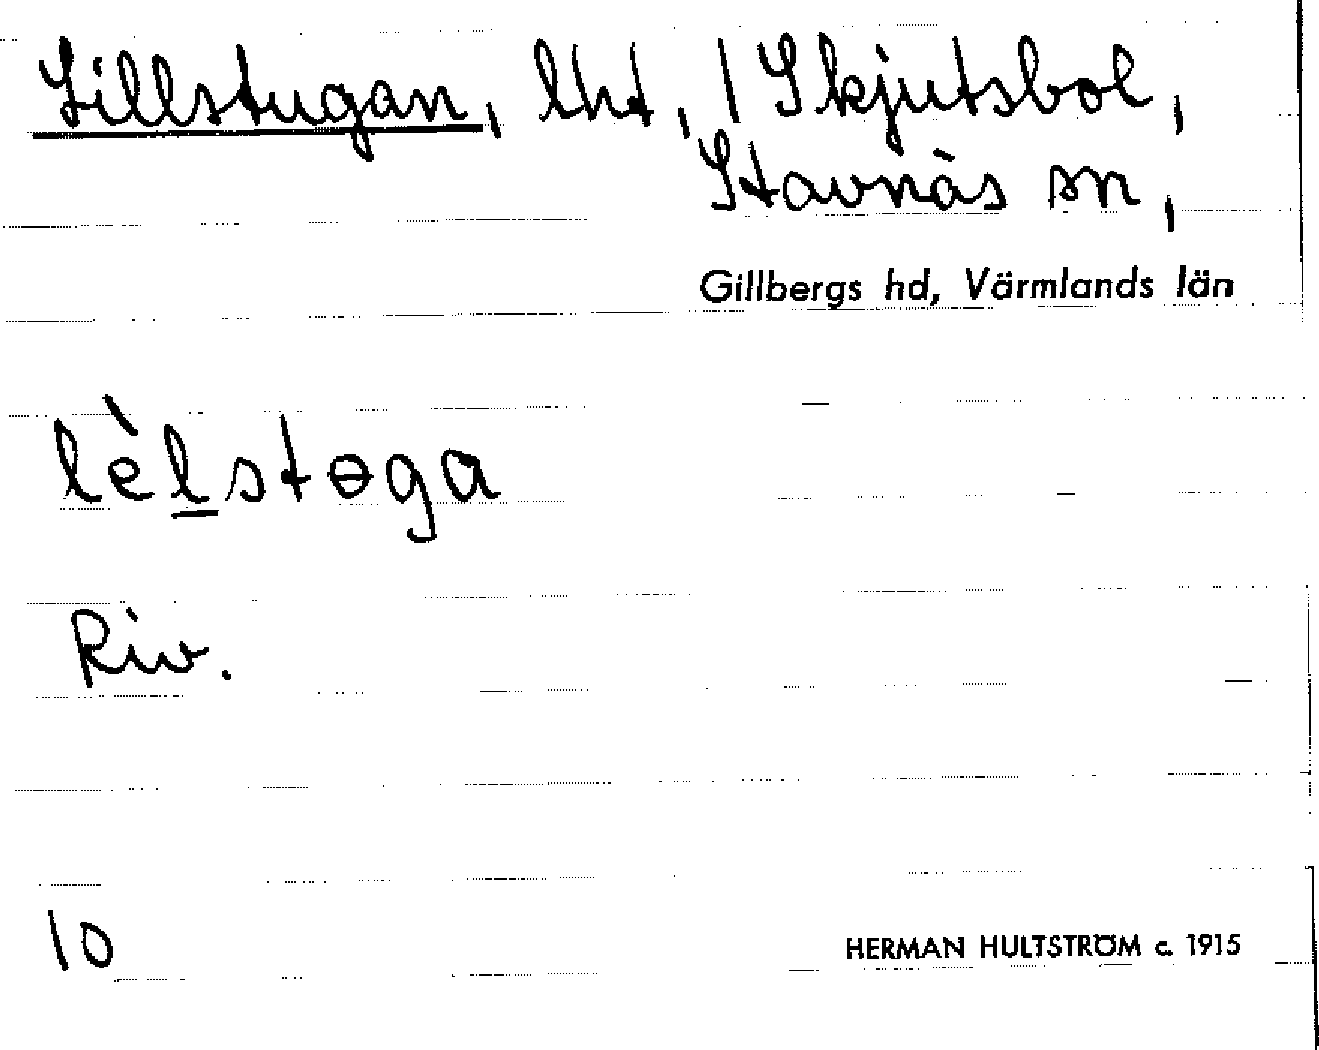 Lillstugan, lht, 1 Skjutsbol,
Stavnäs sn,
Gillbergs hd, Värmlands län
lèlstɵga
Riv.
10
HERMAN HULTSTRÖM c. 1915